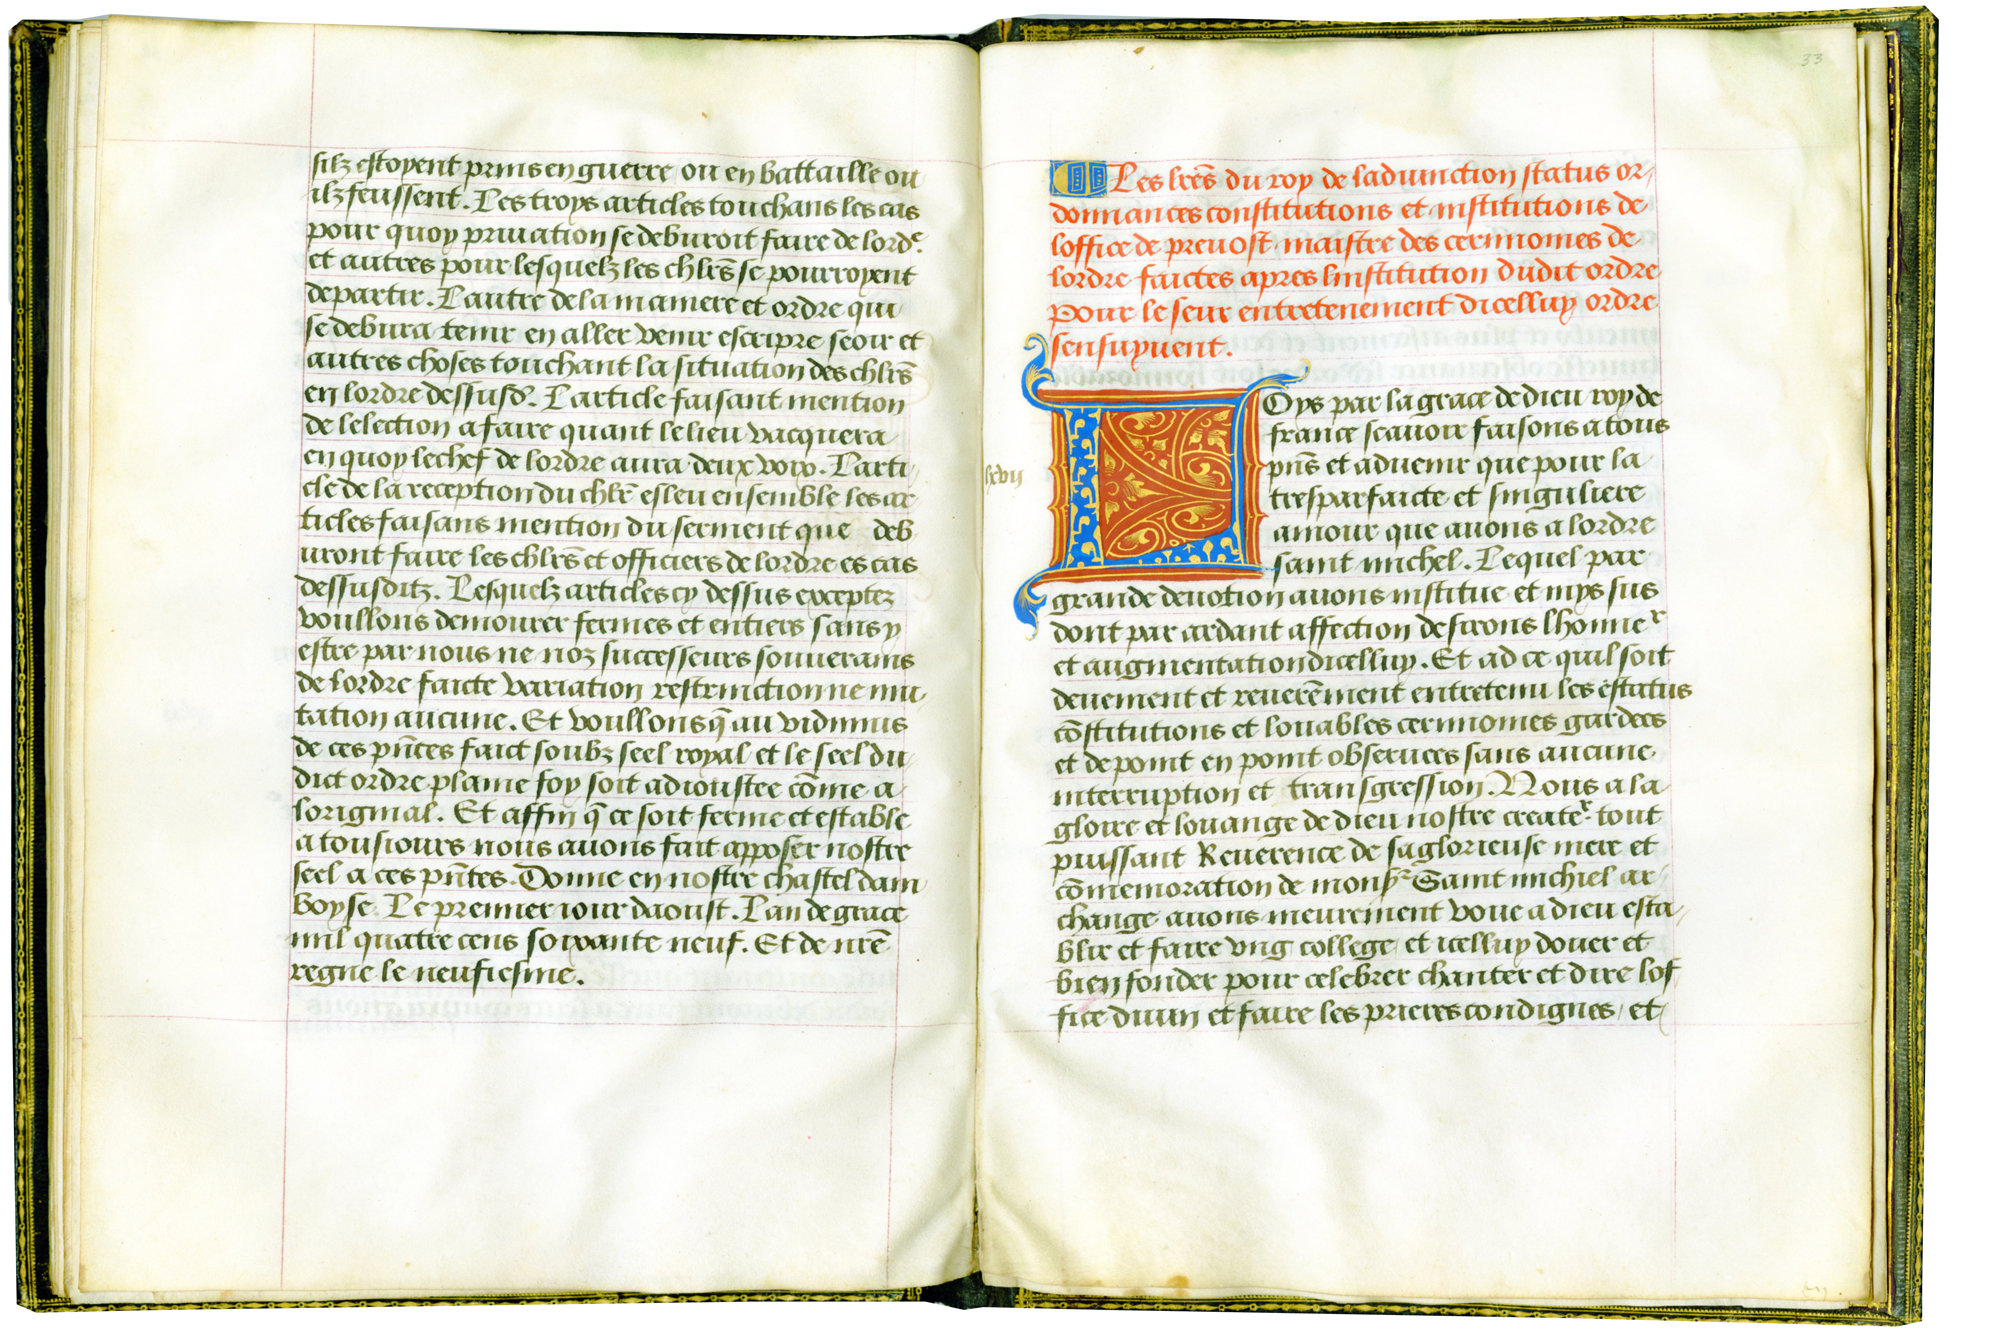 silz estoyent prins en guerre ou en battaille ou
ilz feussent. Les troys articles touchans les cas
pour quoy priuation se deburoit faire de lordᵉ.
et autres pour lesquelz les chlr̄s se pourroyent
departir. Lautre de la maniere et ordre qui
se debura tenir en aller venir escripre seoir et
autres choses touchant la situation des chlr̄s
en lordre dessusdᵗ. Larticle faisant mention
de lelection a faire quant le lieu vacquera
en quoy le chef de lordre aura deux voix. Larti
cle de la reception du chlr̄ esleu ensemble les ar
ticles faisans mention du serment que deb
uront faire les chlr̄s et officiers de lordre es cas
dessusditz. Lesquelz articles cy dessus exceptez
voullons demourer fermes et entiers sans y
estre par nous ne noz successeurs souuerains
de lordre faicte variation restrinction ne mu
tation aucune. Et voullons q̄ au vidimus
de ces pn̄tes faict soubz seel royal et le seel du
dict ordre plaine foy soit adioustee cōme a
loriginal. Et affin q̄ ce soit ferme et estable
a tousiours nous auons fait apposer nostre
seel a ces pn̄tes. Donne en nostre chastel dam
boyse. Le premier iour daoust. Lan de grace
mil quatre cens soixante neuf. Et de nr̄e
regne le neufiesme.
33
Les lr̄es du roy de ladiunction status or
donnances constitutions et institutions de
loffice de preuost maistre des cerimonies de
lordre faictes apres linstitution dudit ordre
Pour le seur entretenement dicelluy ordre
sensuyuent.
lxvij
LOys par la grace de dieu roy de
france scauoir faisons a tous
pn̄s et aduenir que pour la
tresparfaicte et singuliere
amour que auons a lordre
saint michel. Lequel par
grande deuotion auons institue et mys sus
dont par ardant affection desirons lhonneʳ
et augmentation dicelluy. Et ad ce quil soit
deuement et reuerēment entretenu les estatus
cōstitutions et louables cerimonies gardees
et de point en point obseruees sans aucune
interruption et transgression. Nous a la
gloire et louange de dieu nostre createʳ tout
puissant Reuerence de sa glorieuse mere et
cōmemoration de monsʳ Saint michiel ar
change auons meurement voue a dieu esta
blir et faire vng college et icelluy douer et
bien fonder pour celebrer chanter et dire lof
fice diuin et faire les prieres condignes et